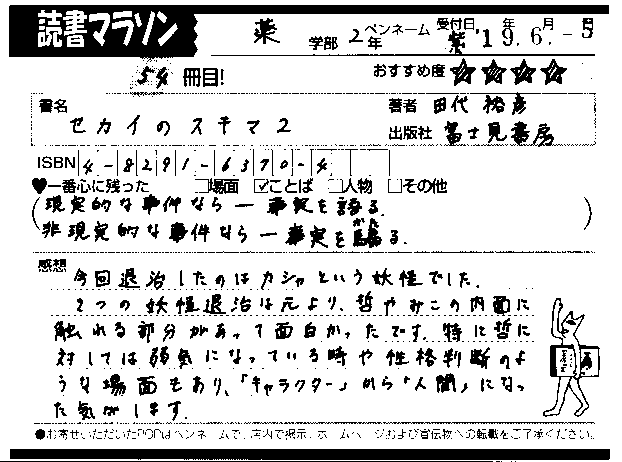 読書マラソン
薬 学部 2年 ペンネーム 紫 受付日 '19年 6月 -5日
54 冊目! おすすめ度 ☆☆☆☆
書名 セカイのスキマ2
著者 田代裕彦
出版社 富士見書房
ISBN 4-8291-6370-4
♥一番心に残った □場面 ☑ことば □人物 □その他
(現実的な事件なら― 事実を語る.
非現実的な事件なら― 事実を騙る.)
かた
感想
今回退治したのはカシャという妖怪でした.
2つの妖怪退治は元より、哲やみこの内面に
触れる部分があって面白かったです. 特に哲に
対しては弱気になっている時や性格判断のよ
うな場面もあり、「キャラクター」から「人間」になっ
た気がします.
●お寄せいただいたPOPはペンネームで、店内で掲示、ホームページおよび宣伝物への転載をご了承ください。